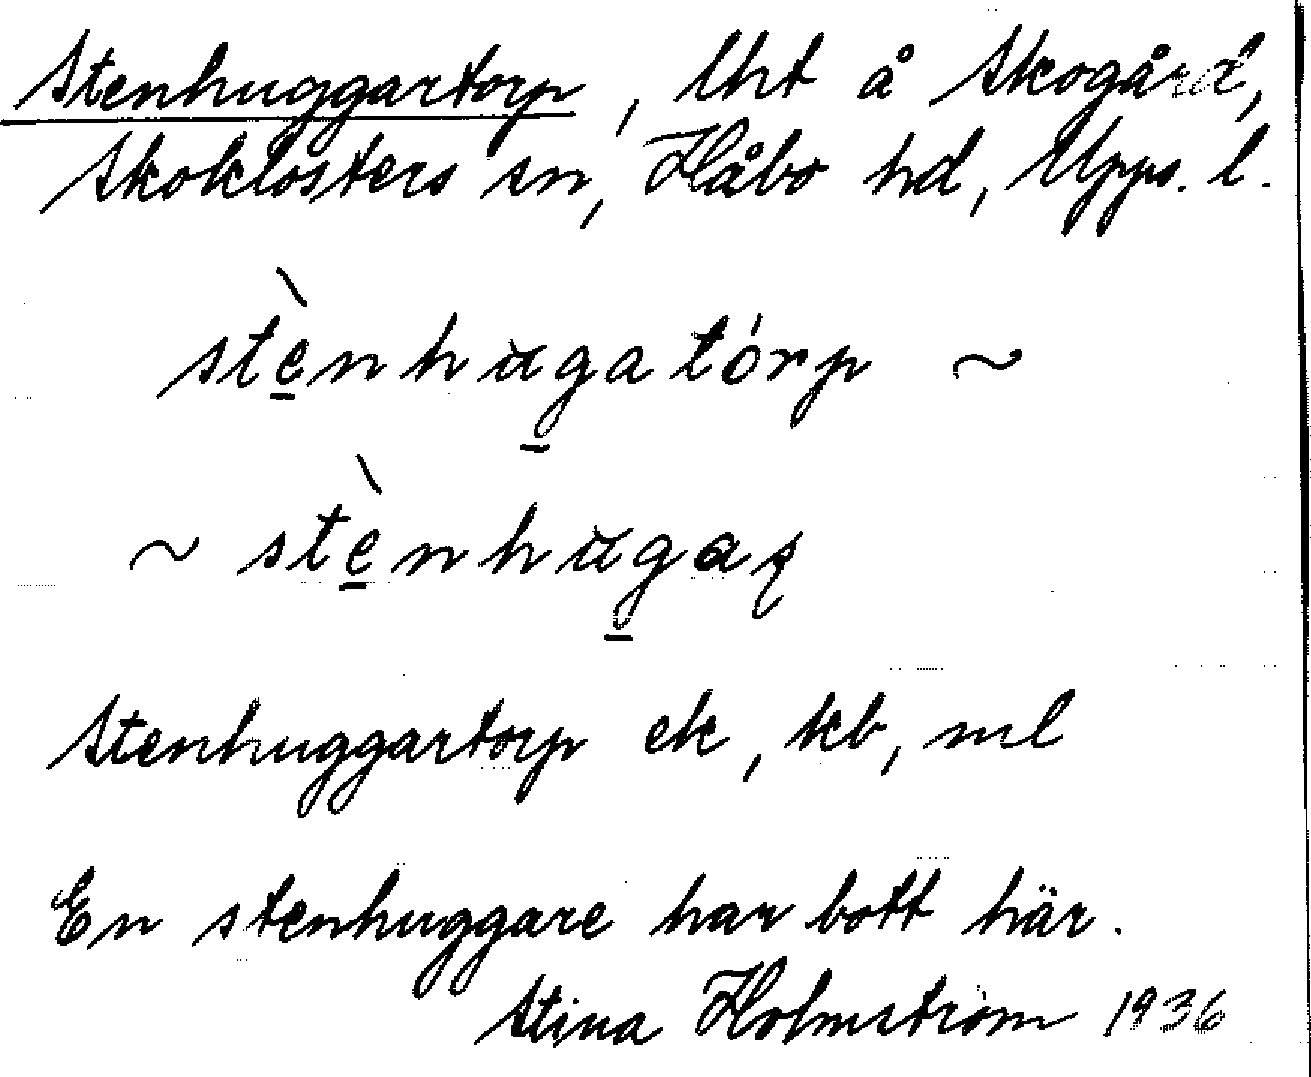 Stenhuggartorp, lht å Skogård,
Skoklosters sn, Håbo hd, Upps. l.
stè̀nhùgatórp ~
~ stè̀nhùgaʂ
Stenhuggartorp ek, kb, ml
En stenhuggare har bott här.
Stina Holmström 1936